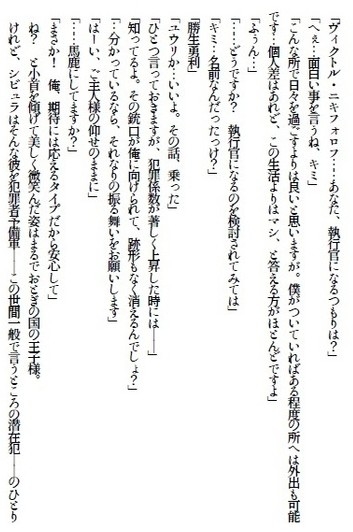 「ヴィクトル・ニキフォロフ……あなた、執行官になるつもりは?」
「へぇ…面白い事を言うね、キミ」
「こんな所で日々を過ごすよりは良いと思いますが。僕がついていればある程度の所へは外出も可能
です…個人差はあれど、この生活よりはマシ、と答える方がほとんどですよ」
「ふぅん…」
「……どうですか? 執行官になるのを検討されてみては」
「キミ…名前なんだったっけ?」
「勝生勇利」
「ユウリか…いいよ。その話、乗った」
「ひとつ言っておきますが、犯罪係数が著しく上昇した時には――」
「知ってるよ。その銃口が俺に向けられて、跡形もなく消えるんでしょ?」
「…分かっているなら、それなりの振る舞いをお願いします」
「はーい、ご主人様の仰せのままに」
「……馬鹿にしてますか?」
「まさか! 俺、期待には応えるタイプだから安心して」
ね? と小首を傾げて美しく微笑んだ姿はまるでおとぎの国の王子様。
けれど、シビュラはそんな彼を犯罪者予備軍――この世間一般で言うところの潜在犯――のひとり